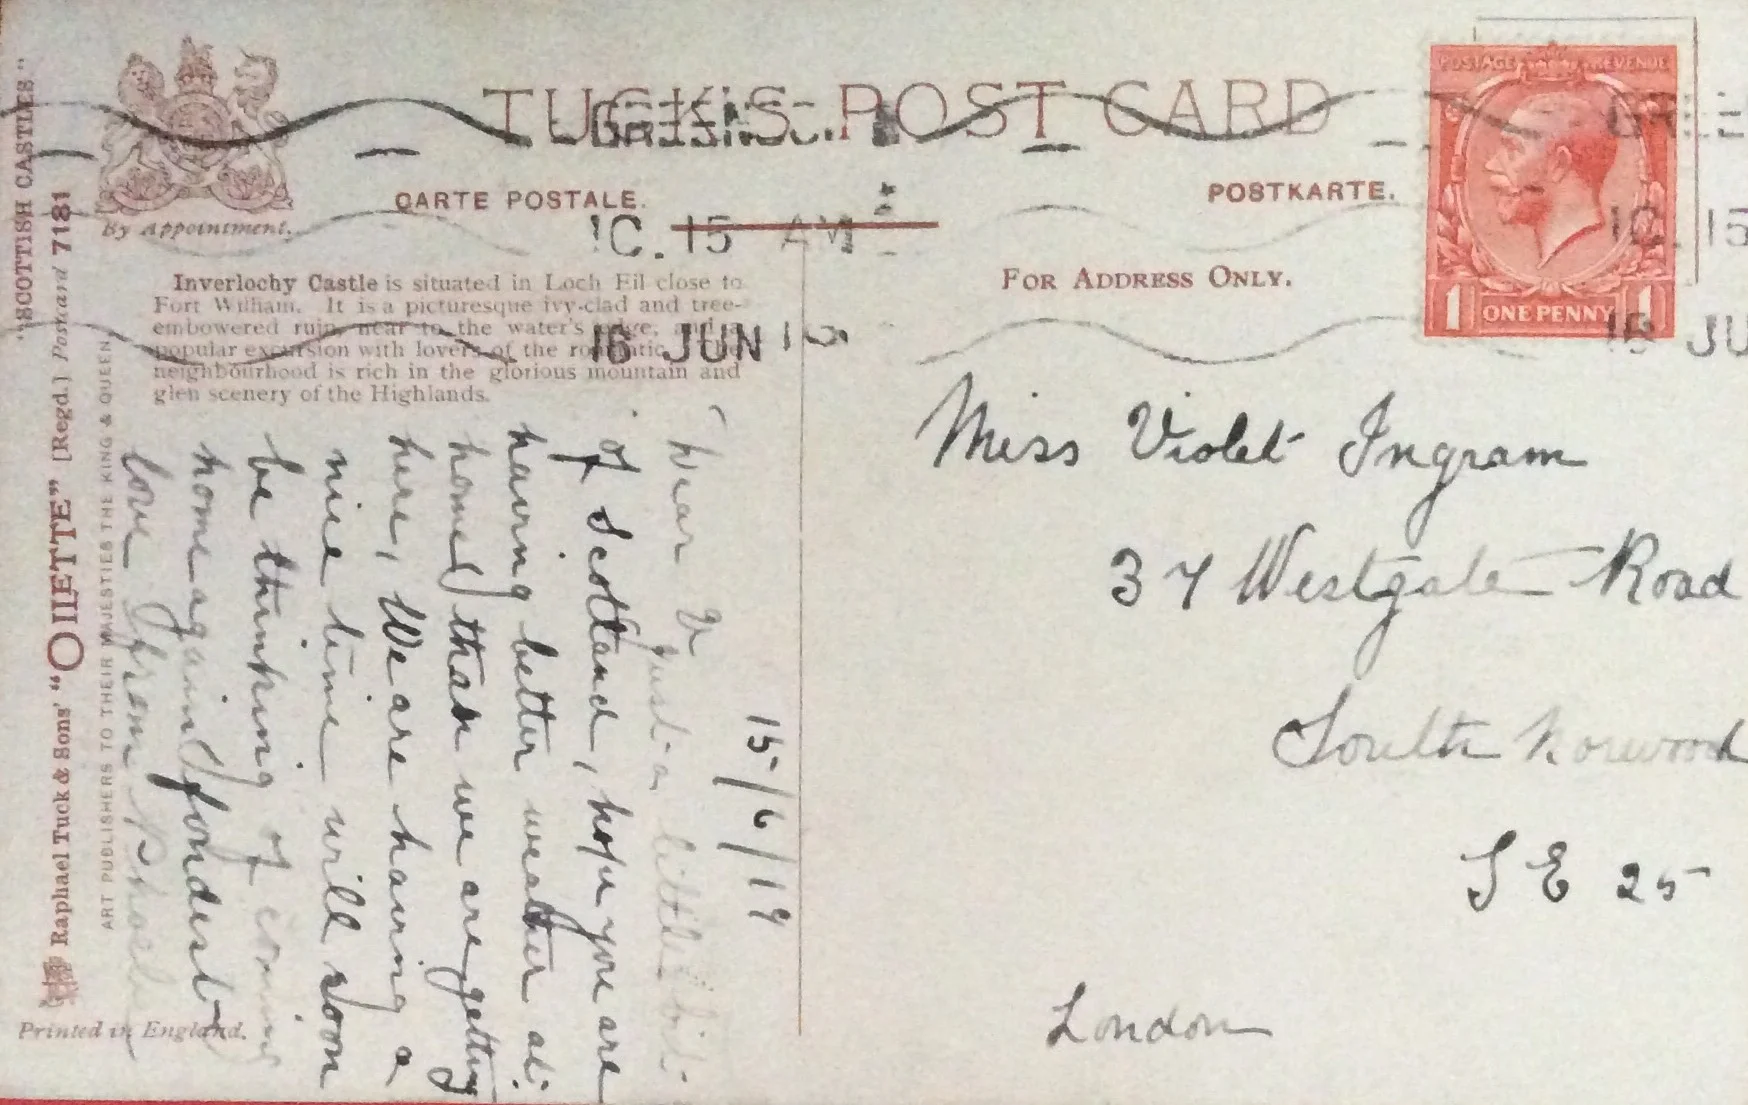 "SCOTTISH CASTLES"
Raphael Tuck & Sons' "OILETTE" [Regd.] Postcard 7181
ART PUBLISHERS TO THEIR MAJESTIES THE KING & QUEEN.
By Appointment.
Printed in England.
TUCK'S POST CARD
CARTE POSTALE.
POSTKARTE.
FOR ADDRESS ONLY.
Inverlochy Castle is situated in Loch Eil close to
Fort William. It is a picturesque ivy-clad and tree-
embowered ruin near to the water's edge, and a
popular excursion with lovers of the romantic. The
neighbourhood is rich in the glorious mountain and
glen scenery of the Highlands.
10.15 AM
16 JUN 19
POSTAGE REVENUE
1 ONE PENNY 1
10.15
16 JU
15/6/19
Dear V just a little bit
of Scotland, hope you are
having better weather at
home than we are getting
here, We are having a
nice time will soon
be thinking of coming
home again fondest
love from Phoebe
Miss Violet Ingram
37 Westgate Road
South Norwood
S E 25
London